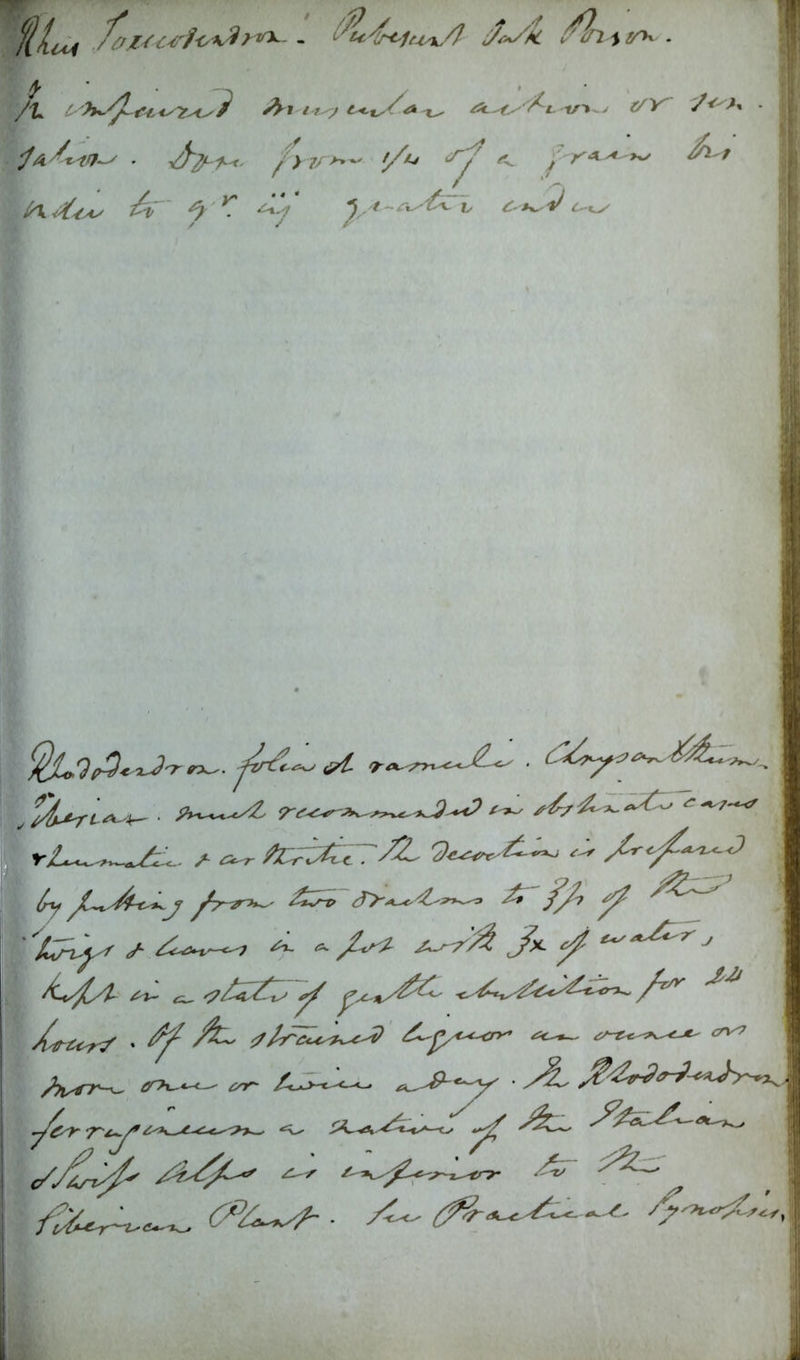 Rhus Toxicodendron. Pubescent Oak Poison.
To increased muscular action or sen-
sation. Dose from 1/4 of a grain
to gr. iij
Rhododendron. folia et ramuli. Chrysanthum.
Siberian. much recommended in obstinate cases
rheumatic & arthritic. The Decoction is prepared
by putting from two drachms to ℥ſs of the
twigs & leaves in a pot with ℥x of water,
kept in a state of gentle ebullition for 12
hours. Of the strained liquor an ounce or
more once or twice a day. The Rhododendron
ferrugineum a Native of the Italian
Swiss Alps is inferior to the
Siberian Plant. See Practical Synopsis,